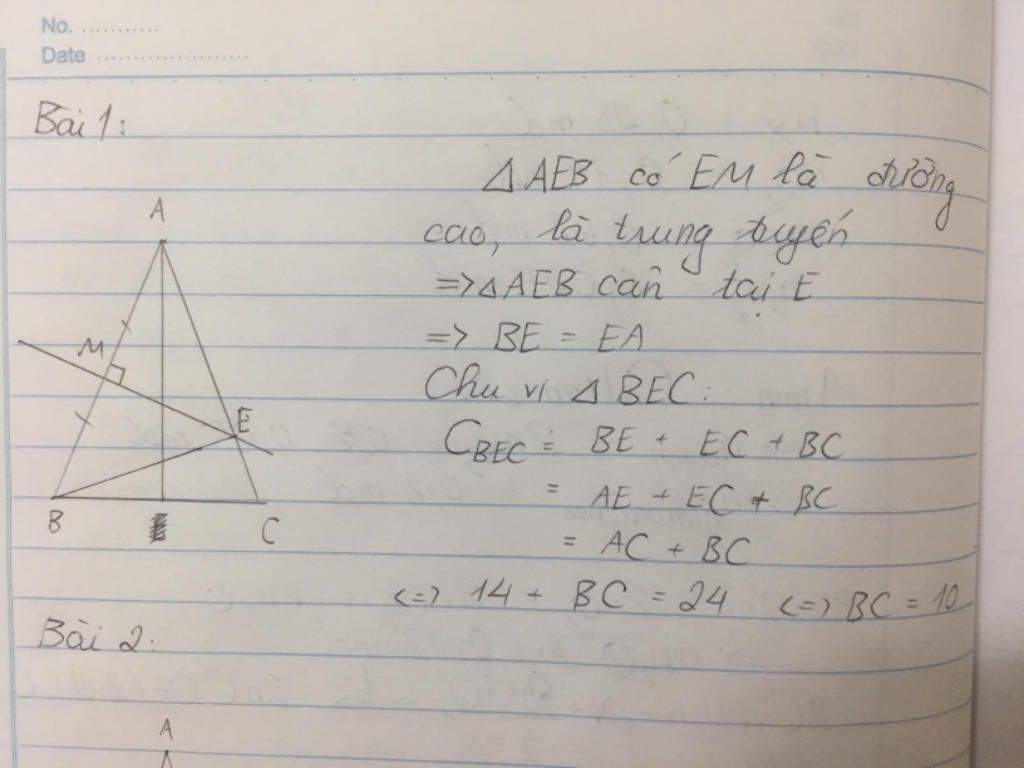 No. ...........
Date ......................
Bài 1:
△ AEB có EM là đường
cao, là trung tuyến
=> △ AEB cân tại E
=> BE = EA
Chu vi △ BEC:
C_BEC = BE + EC + BC
= AE + EC + BC
= AC + BC
<=> 14 + BC = 24 <=> BC = 10
A
M
E
B
C
Bài 2:
A